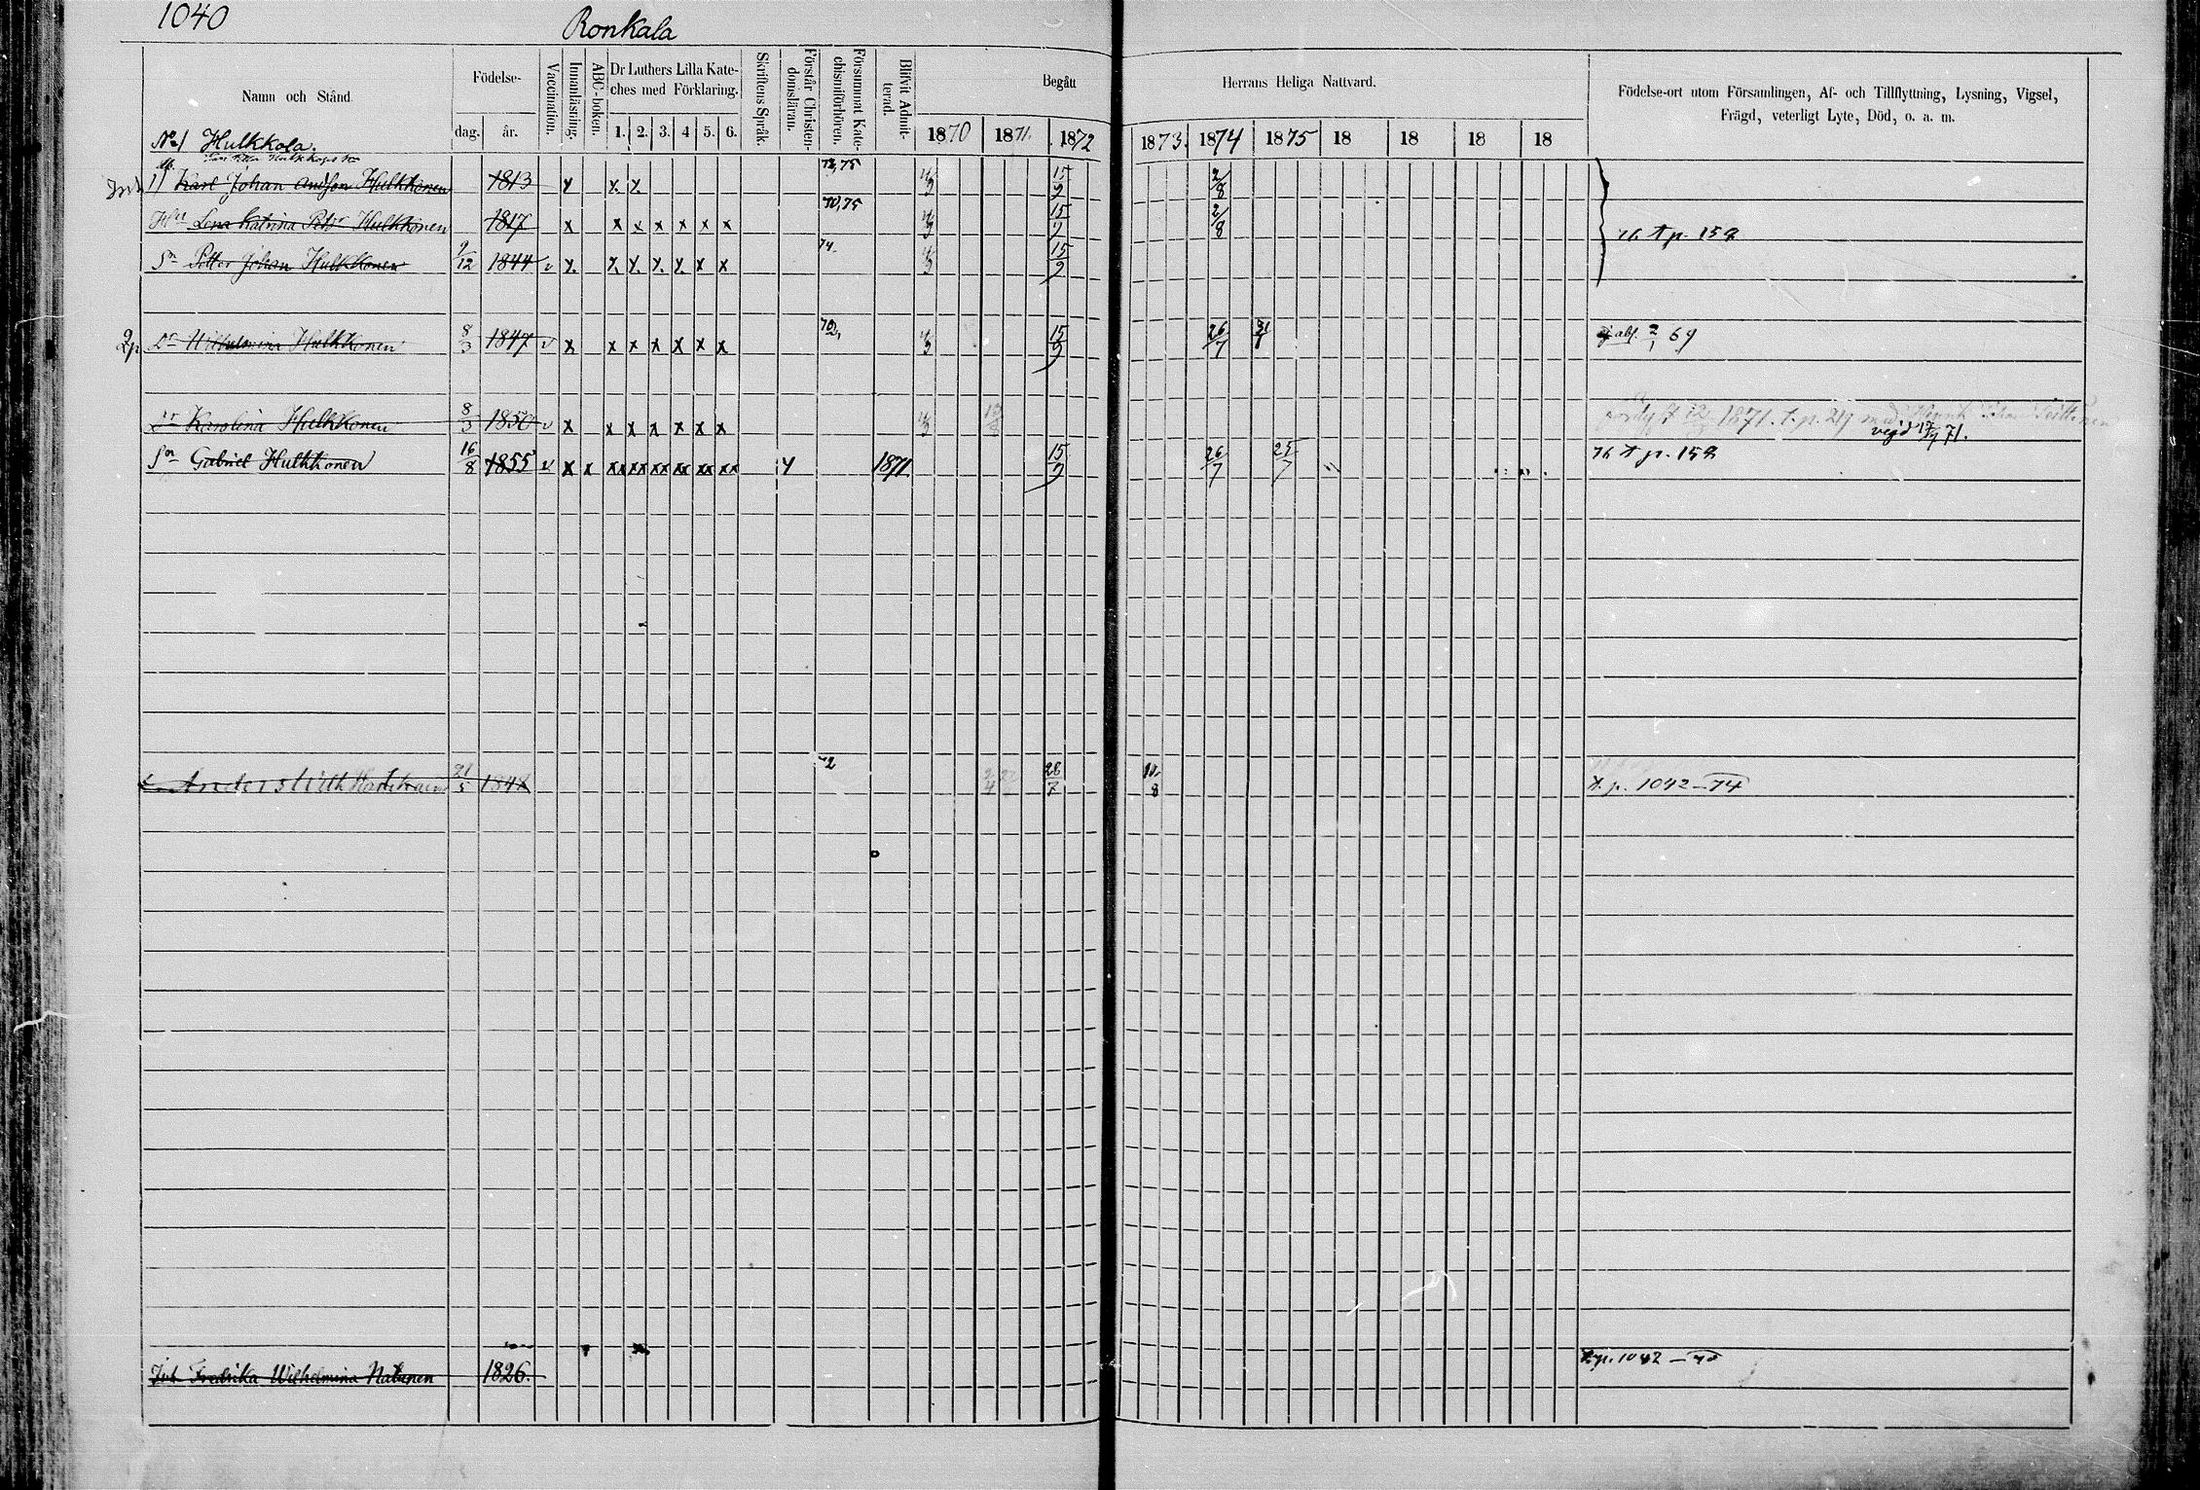 1040
Ronkala
Namn och Stånd
Födelse-
dag. år.
Vaccination.
Innanläsning.
ABC-boken.
Dr Luthers Lilla Kate-
ches med Förklaring.
1. 2. 3. 4 5. 6.
Skriftens Språk.
Förstår Christen-
domsläran.
Försummat Kate-
chismiförhören.
Blifvit Admit-
terad.
Begått
1870 1871. 1872
Herrans Heliga Nattvard.
1873. 1874 1875 18 18 18 18
Födelse-ort utom Församlingen, Af- och Tillflyttning, Lysning, Vigsel,
Frägd, veterligt Lyte, Död, o. a. m.
No 1 Hulkkola.
Karl Johan Andson Hulkkonen 1813 x x x 75 15/9 2/8
Hu Lena Katrina Petdr Hulkkonen 1817 x x x x x x x 70,75 15/9 2/8
76 t p. 152
Sn Petter Johan Hulkkonen 9/12 1844 v x x x x x x x 74 15/9
Dr Wilhelmina Hulkkonen 8/3 1847 v x x x x x x x 15/9 26/7
69
Dr Karolina Hulkkonen 8/3 1850 v x x x x x x x
1871. t. p. 219
vigd 71.
Sn Gabriel Hulkkonen 16/8 1855 v x x xx xx xx xx xx xx y 1871. 15/9 26/7 25/7
76 t p. 152
Anders 21/5 1848 72 28/7
t. p. 1042 - 74
Fredrika Wilhelmina Natunen 1826.
t. p. 1042